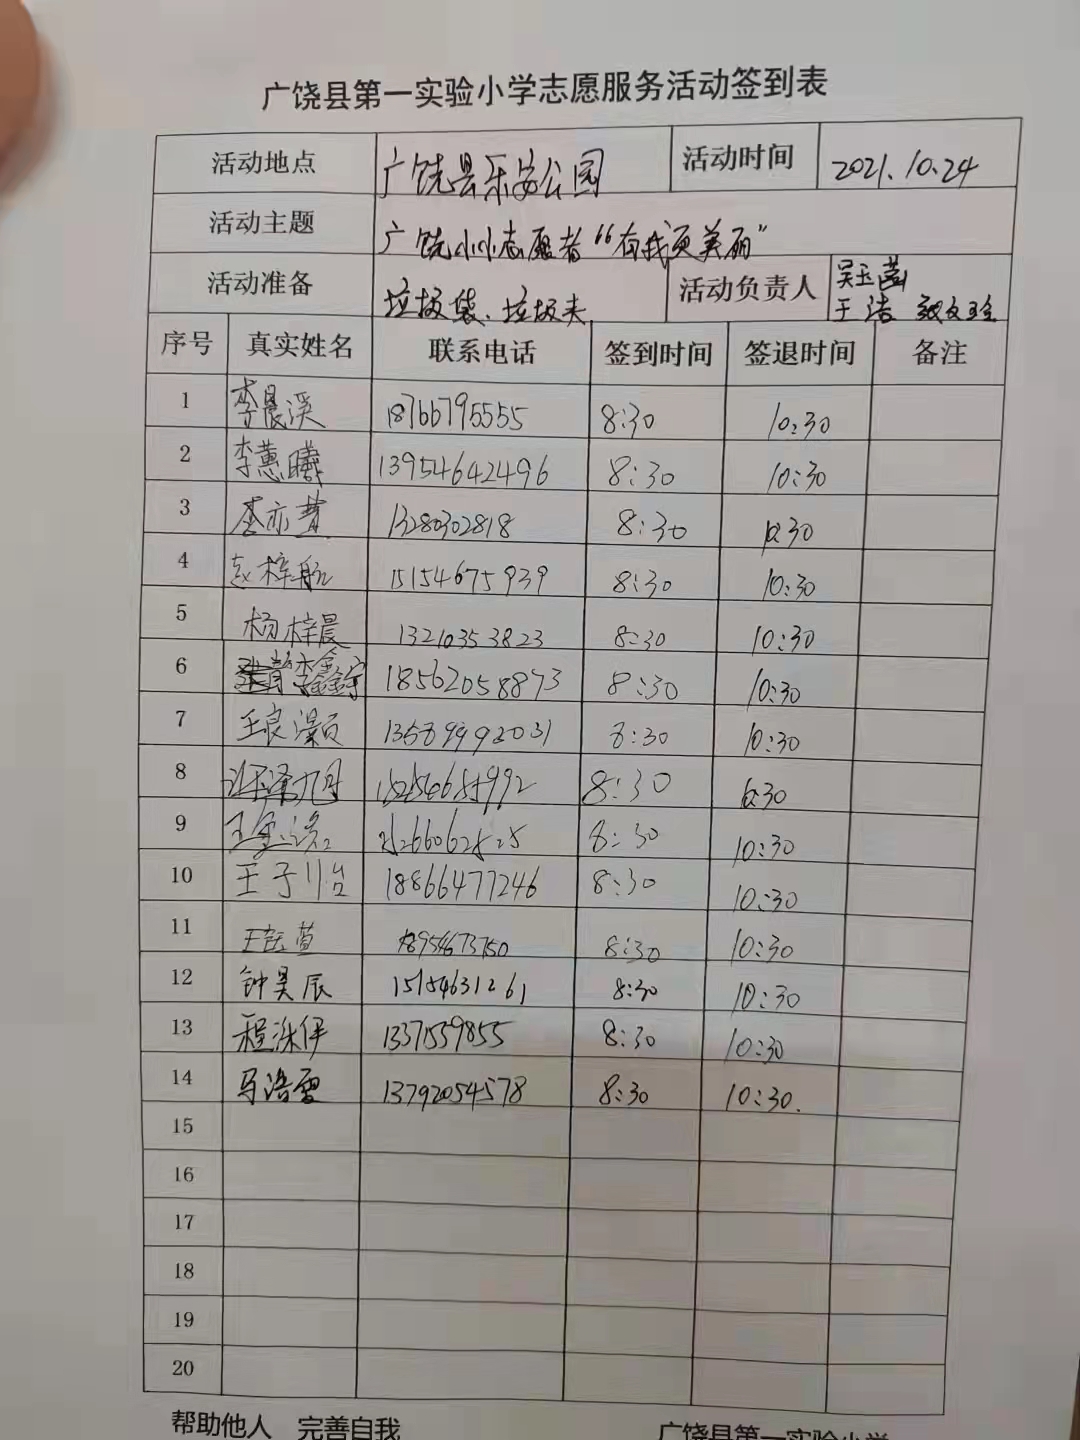 广饶县第一实验小学志愿服务活动签到表
活动地点 广饶县乐安公园 活动时间 2021.10.24
活动主题 广饶小小志愿者“有我更美丽”
活动准备 垃圾袋、垃圾夹 活动负责人 吴玉茜
王洁
序号 真实姓名 联系电话 签到时间 签退时间 备注
1 李晨溪 18766795555 8:30 10:30
2 李蕙曦 13954642496 8:30 10:30
3 13280302818 8:30 10:30
4 赵梓航 15154675939 8:30 10:30
5 杨梓晨 13210353823 8:30 10:30
6 李鑫宇 18562058873 8:30 10:30
7 王良灏 13589992031 8:30 10:30
8 8:30 10:30
9 8:30 10:30
10 王子 18866477246 8:30 10:30
11 王钰萱 18954673750 8:30 10:30
12 钟昊辰 15154631261 8:30 10:30
13 程洙伊 13371559855 8:30 10:30
14 马浩雷 13792054578 8:30 10:30.
15
16
17
18
19
20
帮助他人 完善自我 广饶县第一实验小学